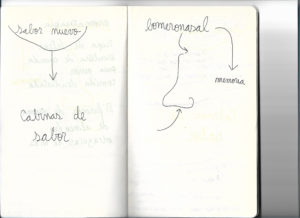 sabor nuevo
Cabinas de
sabor
bomeronasal
memoria